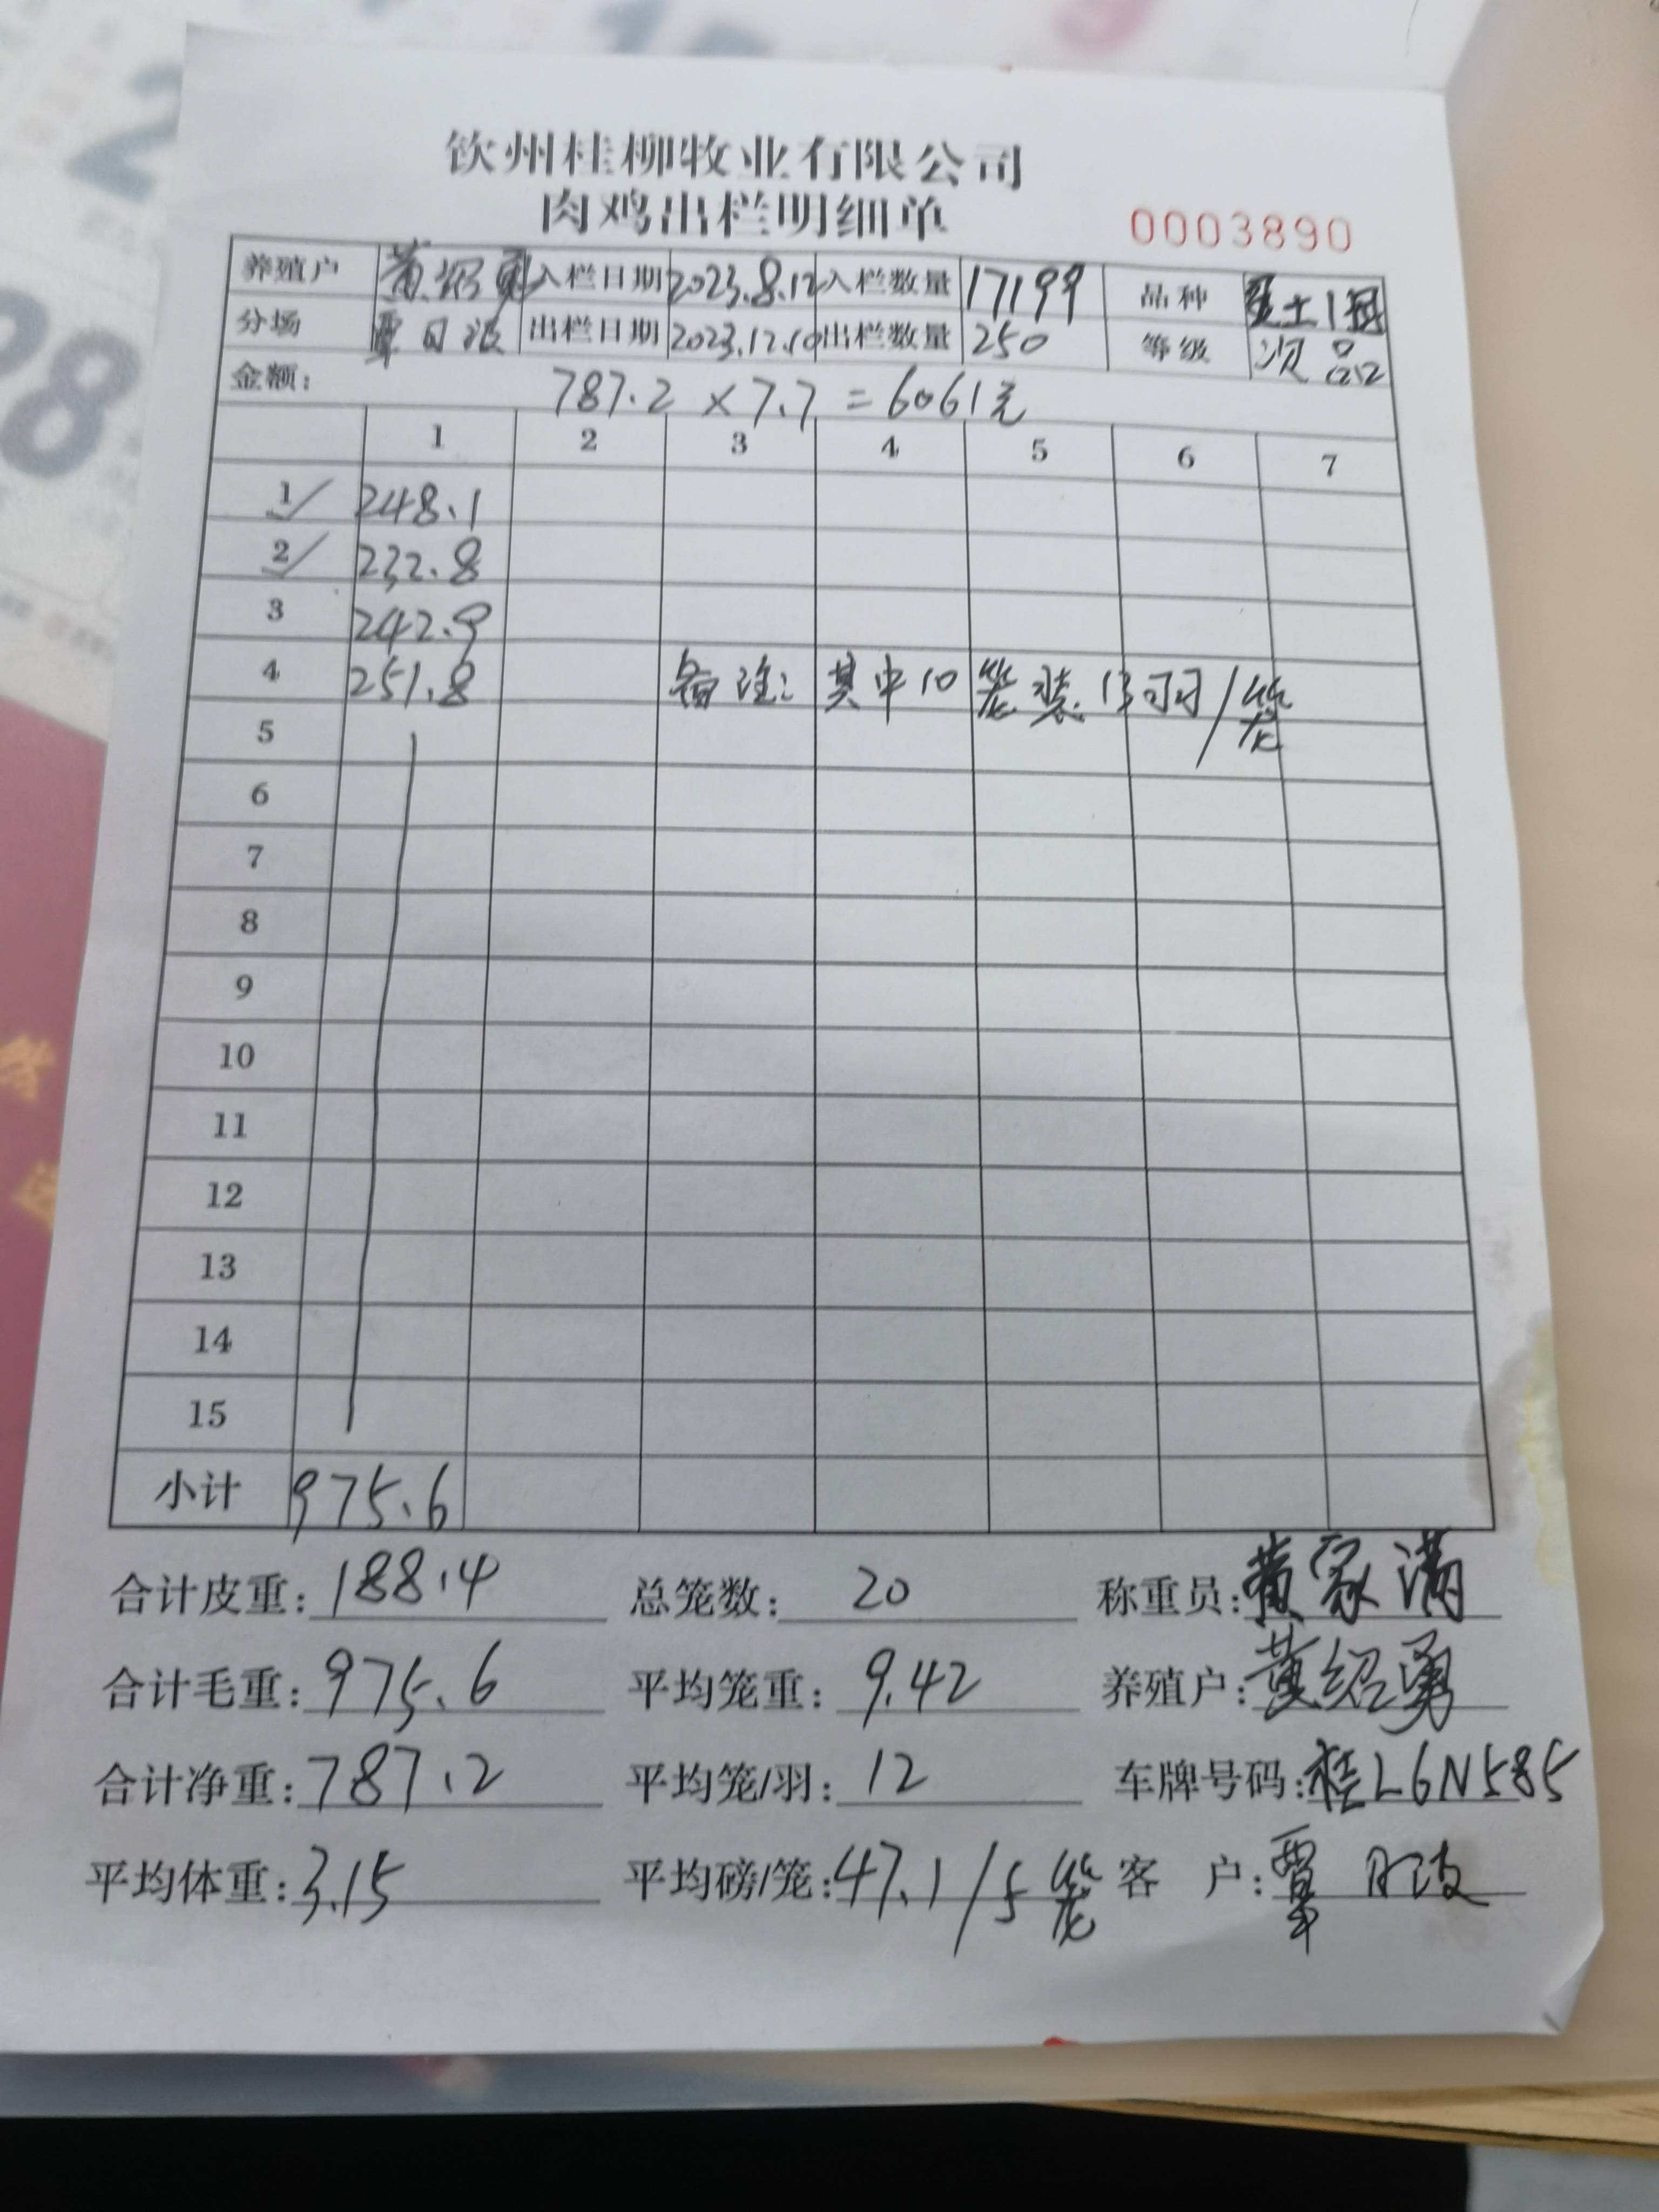 钦州桂柳牧业有限公司
肉鸡出栏明细单
0003890
养殖户 黄绍勇 入栏日期 2023.8.12 入栏数量 17199 品种 土1
分场 覃月波 出栏日期 2023.12.10 出栏数量 250 等级 次品
金额: 787.2 × 7.7 = 6061元
1 2 3 4 5 6 7
1 248.1
2 232.8
3 242.9
4 251.8 备注: 其中10笼装13羽/笼
5
6
7
8
9
10
11
12
13
14
15
小计 975.6
合计皮重: 188.4 总笼数: 20 称重员: 黄家满
合计毛重: 975.6 平均笼重: 9.42 养殖户: 黄绍勇
合计净重: 787.2 平均笼/羽: 12 车牌号码: 桂L6N585
平均体重: 3.15 平均磅/笼: 47.1/5笼 客 户: 覃月波